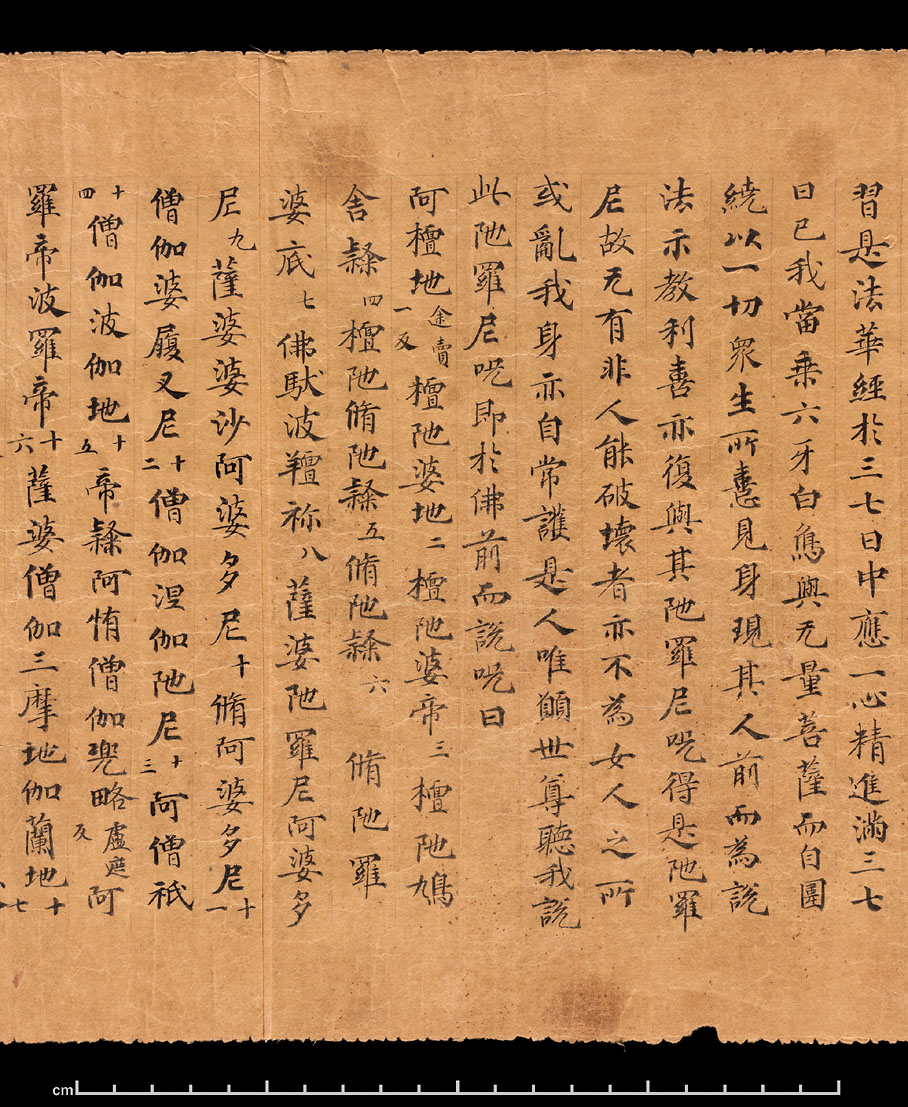 習是法華經於三七日中應一心精進滿三七
日已我當乗六牙白象與无量菩薩而自圍
繞以一切衆生所憙見身現其人前而為說
法示教利喜亦復與其陁羅尼呪得是陁羅
尼故无有非人能破壞者亦不為女人之所
或亂我身亦自常護是人唯願世尊聽我說
此陁羅尼呪即於佛前而說呪曰
阿檀地途賣反一檀陁婆地二檀陁婆帝三檀陁鳩
舍隸四檀陁脩陁隸五脩陁隸六脩陁羅
婆底七佛馱波羶祢八薩婆陁羅尼阿婆多
尼九薩婆婆沙阿婆多尼十脩阿婆多尼十一
僧伽婆履叉尼十二僧伽涅伽陁尼十三阿僧祇
十四僧伽波伽地十五帝隸阿惰僧伽兜略盧遮反阿
羅帝波羅帝十六薩婆僧伽三摩地伽蘭地十七